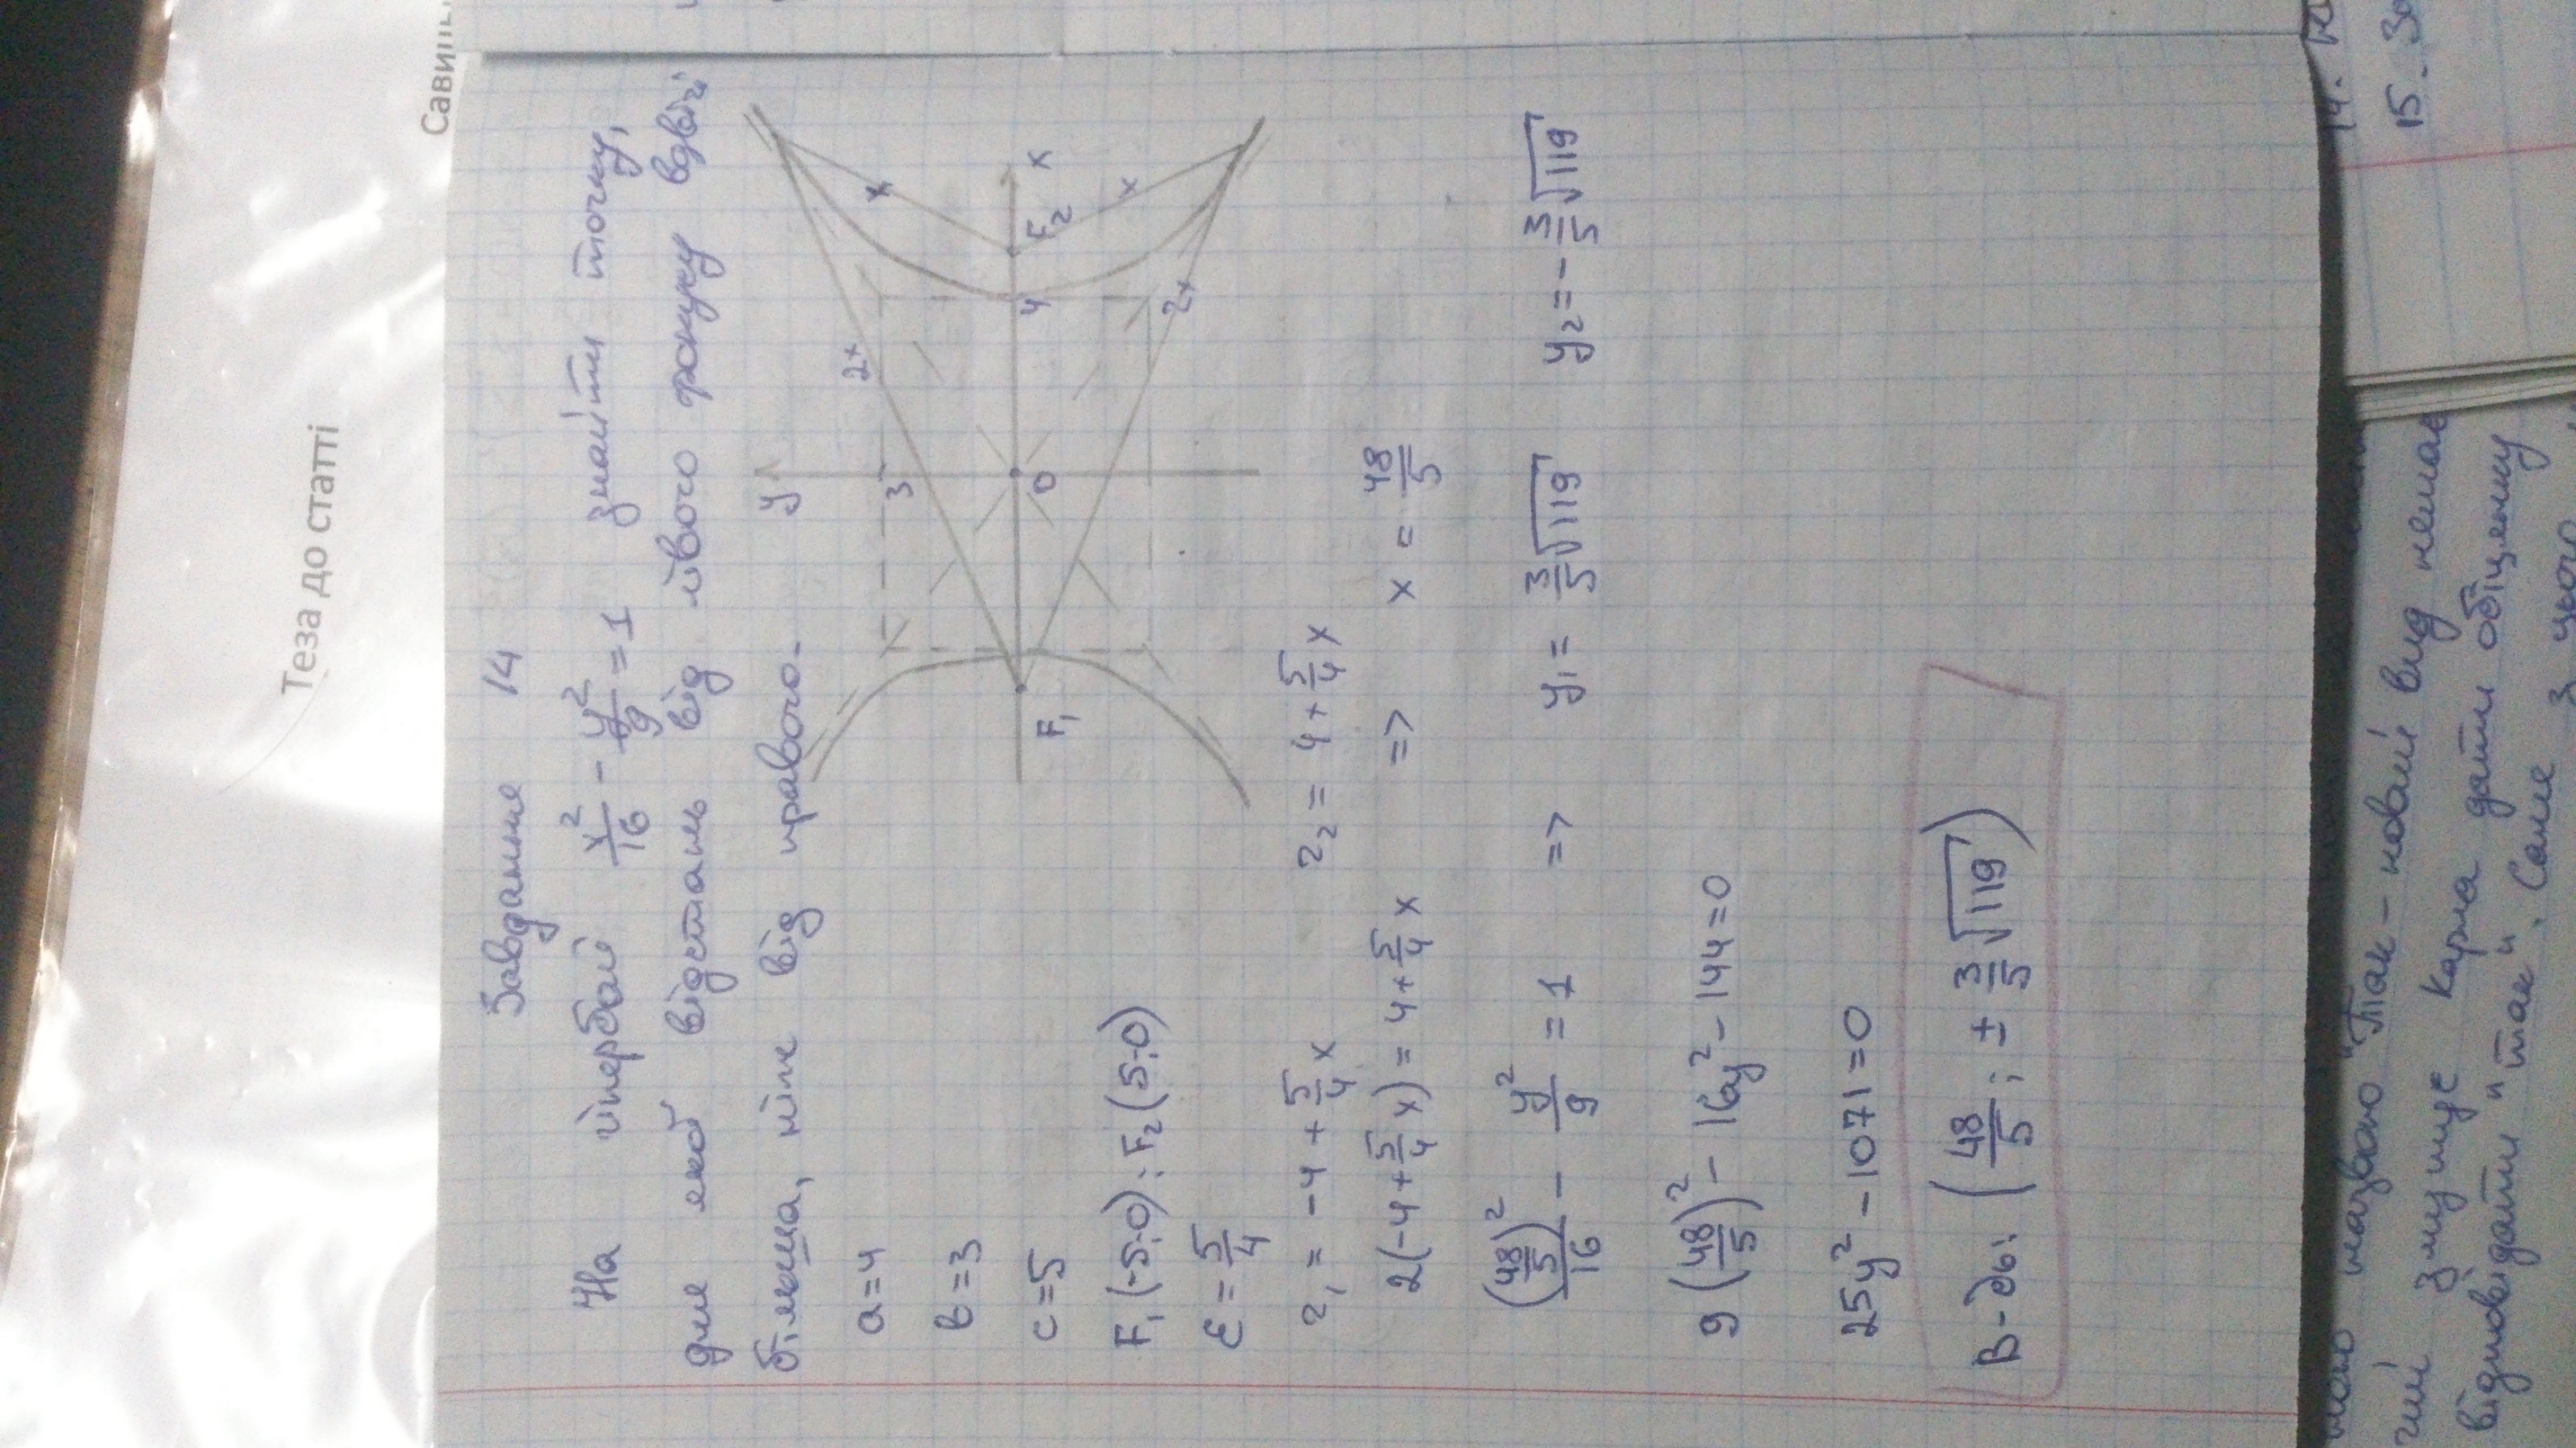 Теза до статті
Завдання 14
На гіперболі x²/16 - y²/9 = 1 знайти точку,
для якої відстань від лівого фокусу вдвічі
більша, ніж від правого.
y
a=4
2x
x
3
b=3
c=5
F₁ 0 4 F₂ x
F₁(-5;0); F₂(5;0)
x
2x
ε = 5/4
r₁ = -4 + 5/4 x r₂ = 4 + 5/4 x
2(-4 + 5/4 x) = 4 + 5/4 x => x = 48/5
(48/5)²/16 - y²/9 = 1 => y₁ = 3/5 √119 y₂ = - 3/5 √119
9(48/5)² - 16y² - 144 = 0
25y² - 1071 = 0
В-дь: (48/5; ± 3/5 √119)
назвою "Так – новий вид немає
змушує Карла дати обіцянку
відповідати "так". Саме з цього
14.
15.